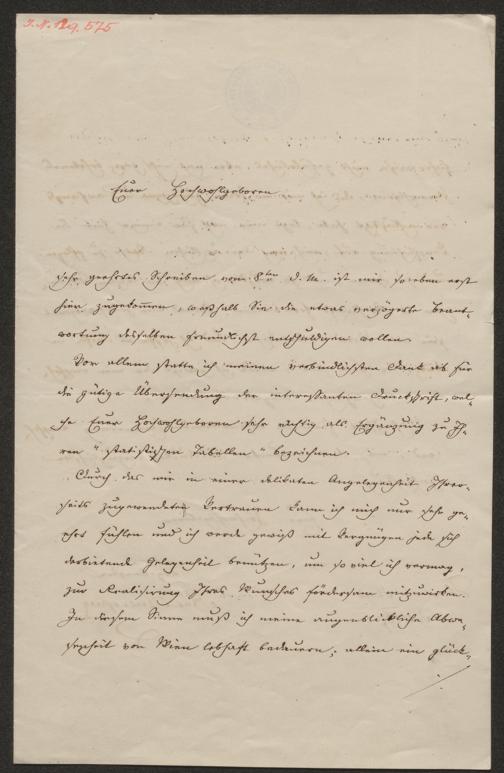 I.N. 129.575
Euer Hochwohlgeboren
sehr geehrtes Schreiben vom 8ten d. M. ist mir soeben erst
hier zugekommen, weßhalb Sie die etwas verzögerte Beant-
wortung desselben freundlichst entschuldigen wollen.
Vor allem statte ich meinen verbindlichsten Dank ab für
die gütige Übersendung der interessanten Druckschrift, wel-
che Euer Hochwohlgeboren sehr richtig als Ergänzung zu Ih-
ren "statistischen Tabellen" bezeichnen.
Durch das mir in einer delikaten Angelegenheit Ihrer-
seits zugewendete Vertrauen kann ich mich nur sehr ge-
ehrt fühlen und ich werde gewiß mit Vergnügen jede sich
darbietende Gelegenheit benützen, um so viel ich vermag,
zur Realisirung Ihres Wunsches fördersam mitzuwirken.
In diesem Sinne muß ich meine augenblickliche Abwe-
senheit von Wien lebhaft bedauern; allein ein glück-